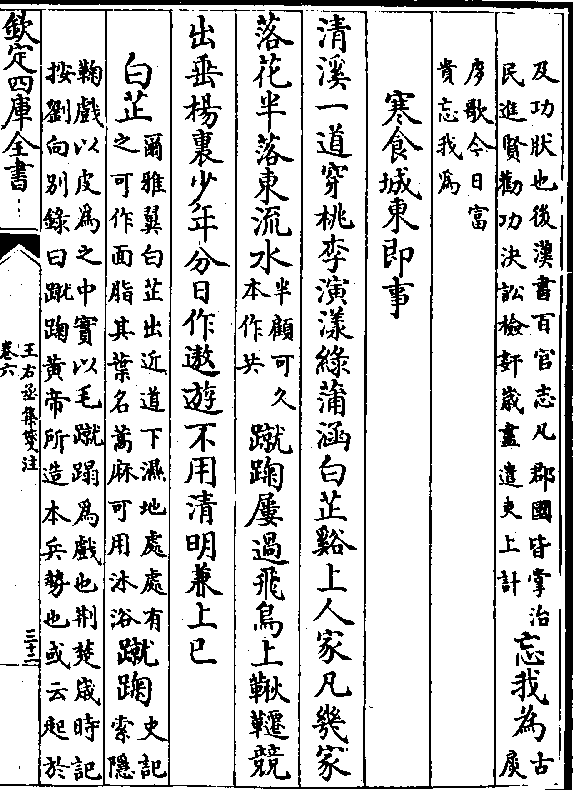 及功狀也後漢書百官志凡郡國皆掌治
民進賢勸功決訟檢奸歲盡遣吏上計
忘我為
古
扊
扅歌今日富
貴忘我為
寒食城東即事
清溪一道穿桃李演漾綠蒲涵白芷谿上人家凡幾家
落花半落東流水
半顧可久
本作共
蹴踘屢過飛鳥上鞦韆競
出垂楊裏少年分日作遨遊不用清明兼上巳
白芷
爾雅翼白芷出近道下濕地處處有
之可作面脂其葉名蒿麻可用沐浴
蹴踘
史記
索隱
鞠戲以皮為之中實以毛蹴蹋為戲也荆楚歲時記
按劉向别錄曰蹴踘黄帝所造本兵勢也或云起於
欽定四庫全書
王右丞集箋注
卷六
三十二